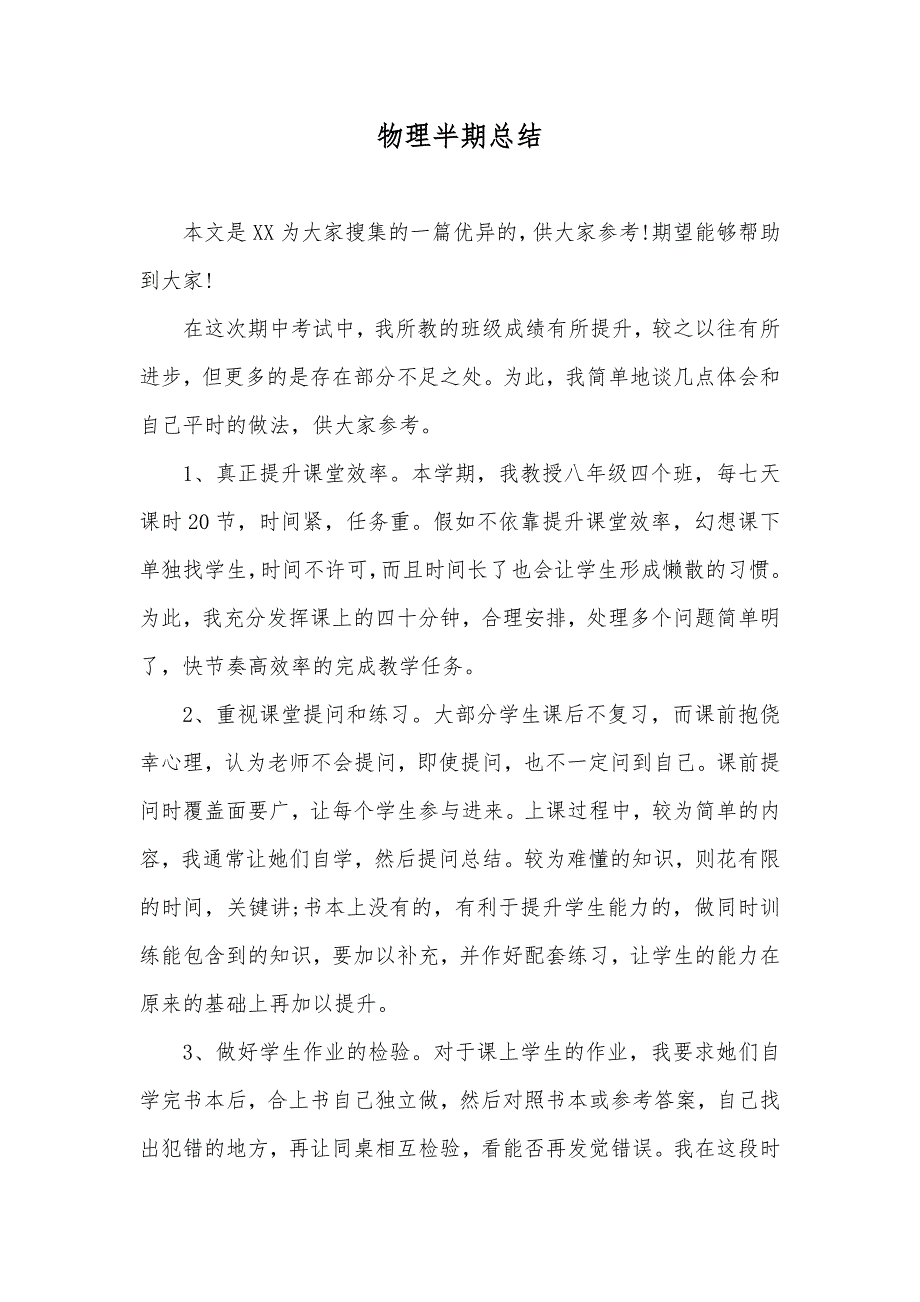 物理半期总结
本文是 XX 为大家搜集的一篇优异的，供大家参考!期望能够帮助
到大家!
在这次期中考试中，我所教的班级成绩有所提升，较之以往有所
进步，但更多的是存在部分不足之处。为此，我简单地谈几点体会和
自己平时的做法，供大家参考。
1、真正提升课堂效率。本学期，我教授八年级四个班，每七天
课时 20 节，时间紧，任务重。假如不依靠提升课堂效率，幻想课下
单独找学生，时间不许可，而且时间长了也会让学生形成懒散的习惯。
为此，我充分发挥课上的四十分钟，合理安排，处理多个问题简单明
了，快节奏高效率的完成教学任务。
2、重视课堂提问和练习。大部分学生课后不复习，而课前抱侥
幸心理，认为老师不会提问，即使提问，也不一定问到自己。课前提
问时覆盖面要广，让每个学生参与进来。上课过程中，较为简单的内
容，我通常让她们自学，然后提问总结。较为难懂的知识，则花有限
的时间，关键讲;书本上没有的，有利于提升学生能力的，做同时训
练能包含到的知识，要加以补充，并作好配套练习，让学生的能力在
原来的基础上再加以提升。
3、做好学生作业的检验。对于课上学生的作业，我要求她们自
学完书本后，合上书自己独立做，然后对照书本或参考答案，自己找
出犯错的地方，再让同桌相互检验，看能否再发觉错误。我在这段时